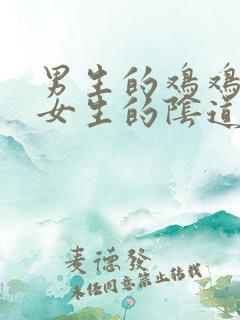 男生的鸡鸡
女生的陰道
麦德發
未经同意禁止转载